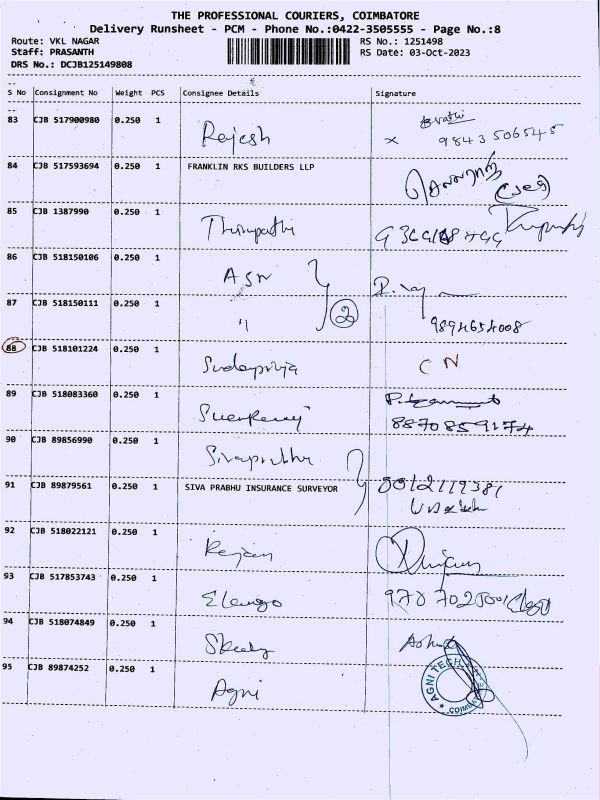 THE PROFESSIONAL COURIERS, COIMBATORE
Delivery Runsheet - PCM - Phone No.:0422-3505555 - Page No.:8
Route: VKL NAGAR RS No.: 1251498
Staff: PRASANTH RS Date: 03-Oct-2023
DRS No.: DCJB125149808
S No Consignment No Weight PCS Consignee Details Signature
83 CJB 517900980 0.250 1 Rajesh x 9843506545
84 CJB 517593694 0.250 1 FRANKLIN RKS BUILDERS LLP
85 CJB 1387990 0.250 1 Thirupathi
86 CJB 518150106 0.250 1 ASN
87 CJB 518150111 0.250 1 " 2 9894654008
88 CJB 518101224 0.250 1 CN
89 CJB 518083360 0.250 1 8870859174
90 CJB 89856990 0.250 1 Sivaprabhu
91 CJB 89879561 0.250 1 SIVA PRABHU INSURANCE SURVEYOR
92 CJB 518022121 0.250 1 Rajan
93 CJB 517853743 0.250 1 Elango
94 CJB 518074849 0.250 1
95 CJB 89874252 0.250 1 Agni AGNI TECH